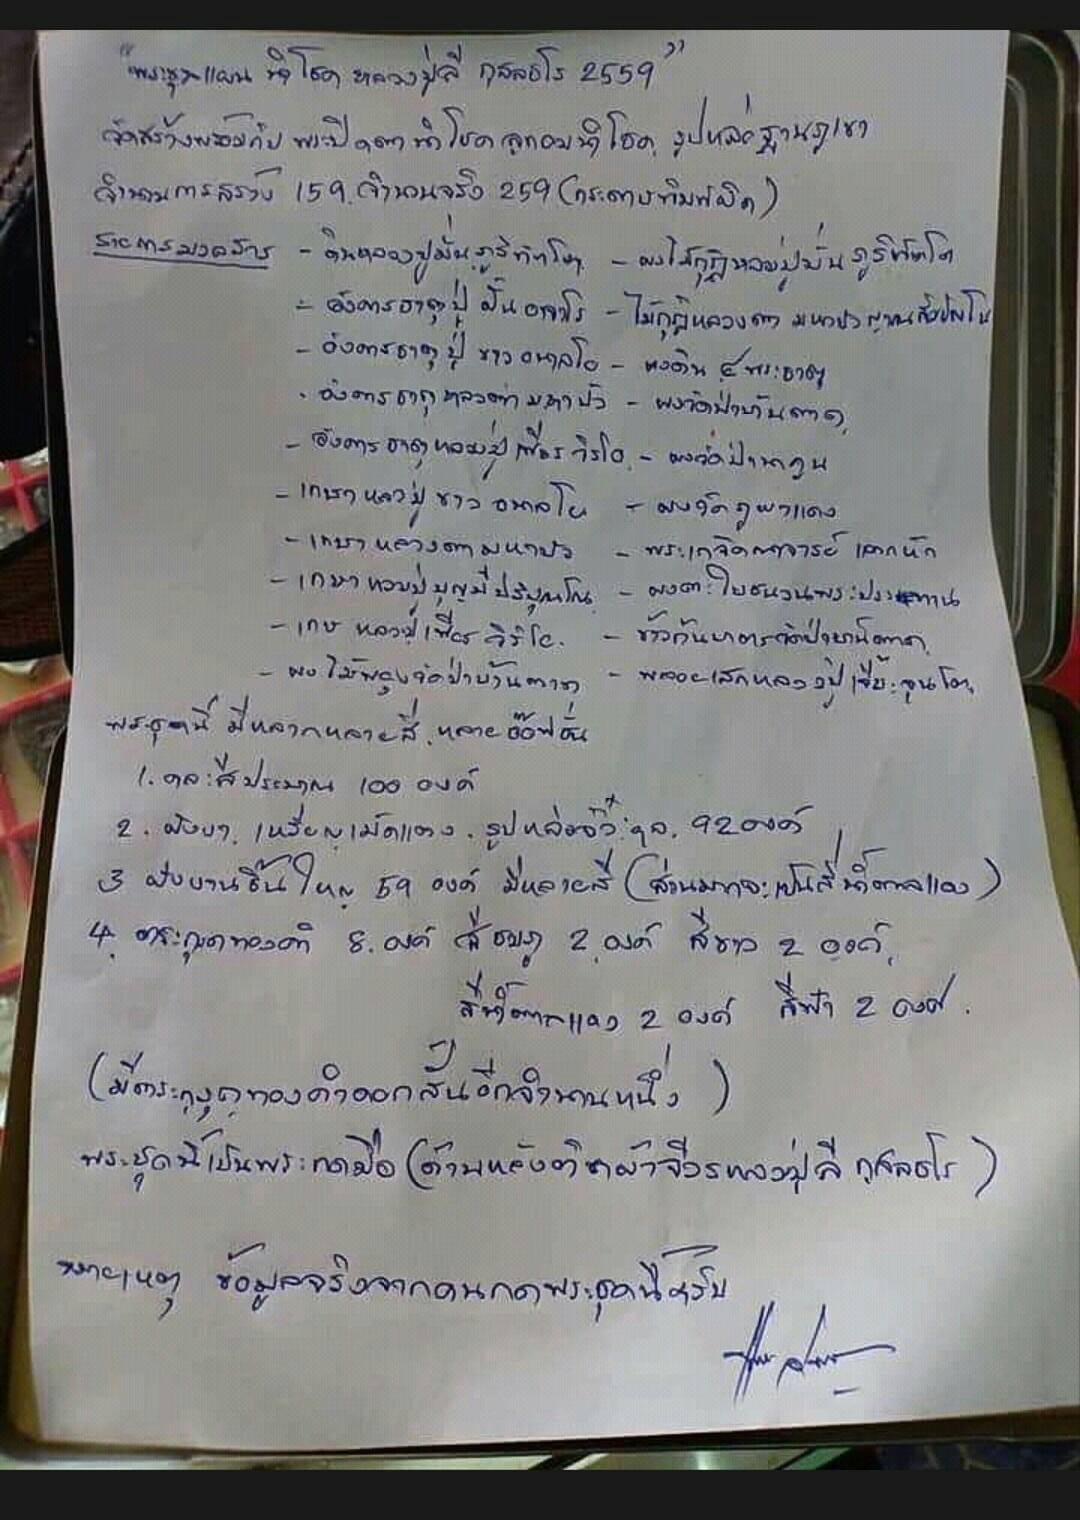 "พระขุนแผน นำโชค หลวงปู่ลี กุสลธโร 2559"
จัดสร้างพร้อมกับ พระปิดตานำโชค ลูกอมนำโชค, รูปหล่อฐานภูเขา
จำนวนการสร้าง 159 จำนวนจริง 259 (กระดาษพิมพ์ผิด)
รายการมวลสาร - ดินหลวงปู่มั่น ภูริทัตโต, - ผงไม้กุฏิหลวงปู่มั่น ภูริทัตโต
- อังคารธาตุปู่ มั่น - ไม้กุฏิหลวงตา มหาบัว ญาณสัมปันโน
- อังคารธาตุปู่ ขาว อนาลโย - ผงดิน ๔ พระธาตุ
- อังคารธาตุหลวงตามหาบัว - ผงวัดป่าบ้านตาด,
- อังคารธาตุหลวงปู่เพียร วิริโย, - ผงวัดป่านาคูน
- เกษาหลวงปู่ ขาว อนาลโย - ผงวัดภูผาแดง
- เกษาหลวงตามหาบัว - พระเกจิคณาจารย์ แตกหัก
- เกษา หลวงปู่บุญมี ปริปุณโณ, - ผงตะไบชนวนพระประธาน
- เกษ หลวงปู่เพียร วิริโย. - ข้าวก้นบาตรวัดป่าบ้านตาด,
- ผงไม้พะยูงวัดป่าบ้านตาด - พลอยเสกหลวงปู่เจี๊ยะ จุนโท,
พระชุดนี้ มีหลากหลายสี, หลายอ๊อฟชั่น
1. คละสีประมาณ 100 องค์
2. ฝังยา, เหรียญเม็ดแตง, รูปหล่อจิ๋ว 92 องค์
3 ฝังจานชิ้นใหญ่ 59 องค์ มีหลายสี (ส่วนมากจะเป็นสีน้ำตาลแดง)
4, ตระกุดทองคำ 8 องค์ สีชมภู 2 องค์ สีขาว 2 องค์,
สีน้ำตาลแดง 2 องค์ สีฟ้า 2 องค์.
(มีตระกุดทองคำตอกสั้นอีกจำนวนหนึ่ง)
พระชุดนี้เป็นพระกดมือ (ด้านหลังติดผ้าจีวรหลวงปู่ลี กุสลธโร)
หมายเหตุ ข้อมูลจริงจากคนกดพระชุดนี้ครับ